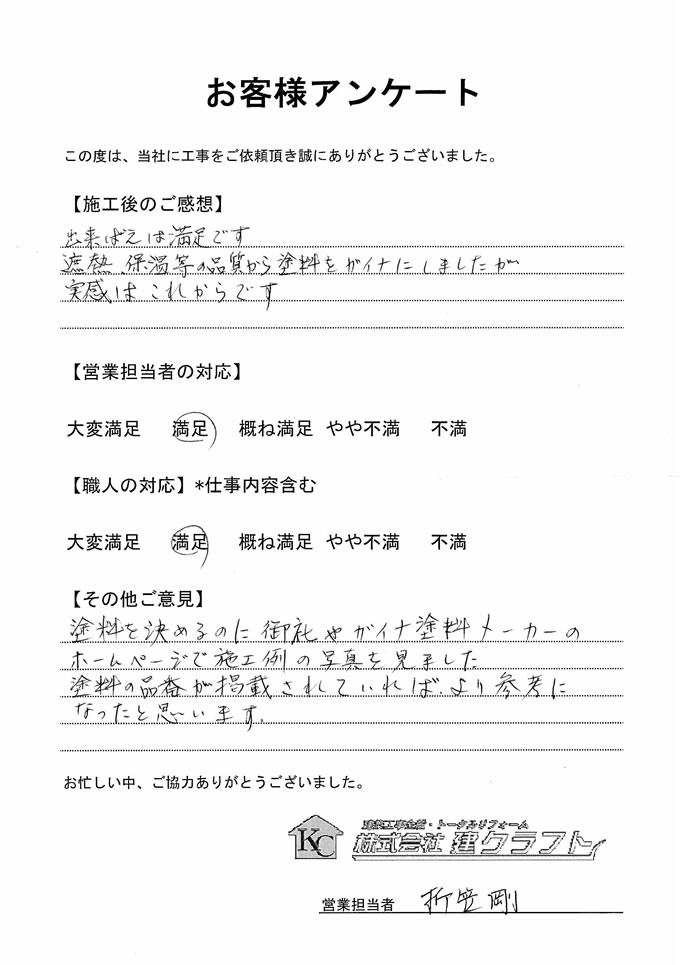 お客様アンケート
この度は、当社に工事をご依頼頂き誠にありがとうございました。
【施工後のご感想】
出来ばえは満足です
遮熱、保温等の品質から塗料をガイナにしましたが
実感はこれからです
【営業担当者の対応】
大変満足 満足 概ね満足 やや不満 不満
【職人の対応】*仕事内容含む
大変満足 満足 概ね満足 やや不満 不満
【その他ご意見】
塗料を決めるのに御社やガイナ塗料メーカーの
ホームページで施工例の写真を見ました
塗料の品番が掲載されていれば、より参考に
なったと思います。
お忙しい中、ご協力ありがとうございました。
建築工事全般・トータルリフォーム
KC 株式会社 建クラフト
営業担当者 折笠剛